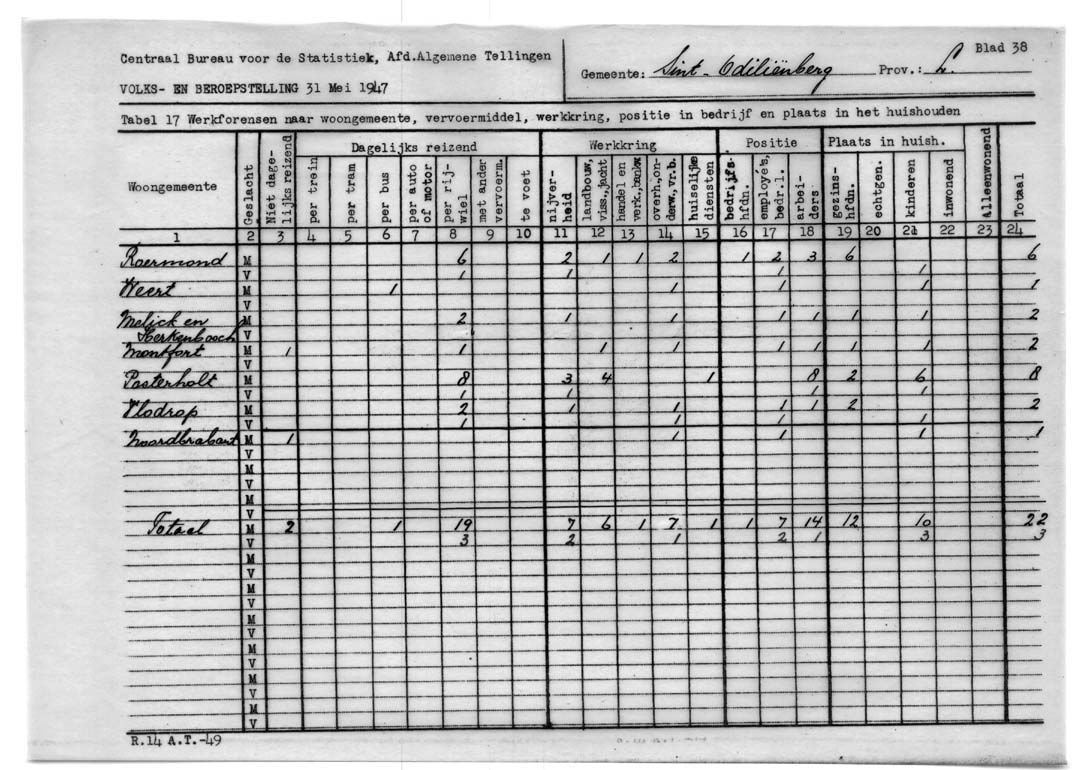 Centraal Bureau voor de Statistiek, Afd.Algemene Tellingen
VOLKS- EN BEROEPSTELLING 31 Mei 1947
Gemeente: Sint-Odiliënberg Prov.: L. Blad 38
Tabel 17 Werkforensen naar woongemeente, vervoermiddel, werkkring, positie in bedrijf en plaats in het huishouden
Woongemeente Geslacht Niet dage-lijks reizend Dagelijks reizend Werkkring Positie Plaats in huish. Alleenwonend Totaal
per trein per tram per bus per auto of motor per rij-wiel met ander vervoerm. te voet nijver-heid landbouw, viss.,jacht handel en verk.,bankw overh.,on-derw.,vr.b. huiselijke diensten bedrijfs-hfdn. employé's, bedr.l. arbei-ders gezins-hfdn. echtgen. kinderen inwonend
1 2 3 4 5 6 7 8 9 10 11 12 13 14 15 16 17 18 19 20 21 22 23 24
Roermond M 6 2 1 1 2 1 2 3 6 6
V 1 1 1 1
Weert M 1 1 1 1 1
V
Melick en M 2 1 1 1 1 1 1 2
Herkenbosch V
Montfort M 1 1 1 1 1 1 1 1 2
V
Posterholt M 8 3 4 1 8 2 6 8
V 1 1 1 1
Vlodrop M 2 1 1 1 1 2 2
V 1 1 1 1
Noordbrabant M 1 1 1 1 1
V
M
V
M
V
M
V
Totaal M 2 1 19 7 6 1 7 1 1 7 14 12 10 22
V 3 2 1 2 1 3 3
M
V
M
V
M
V
M
V
M
V
M
V
R.14 A.T.-49